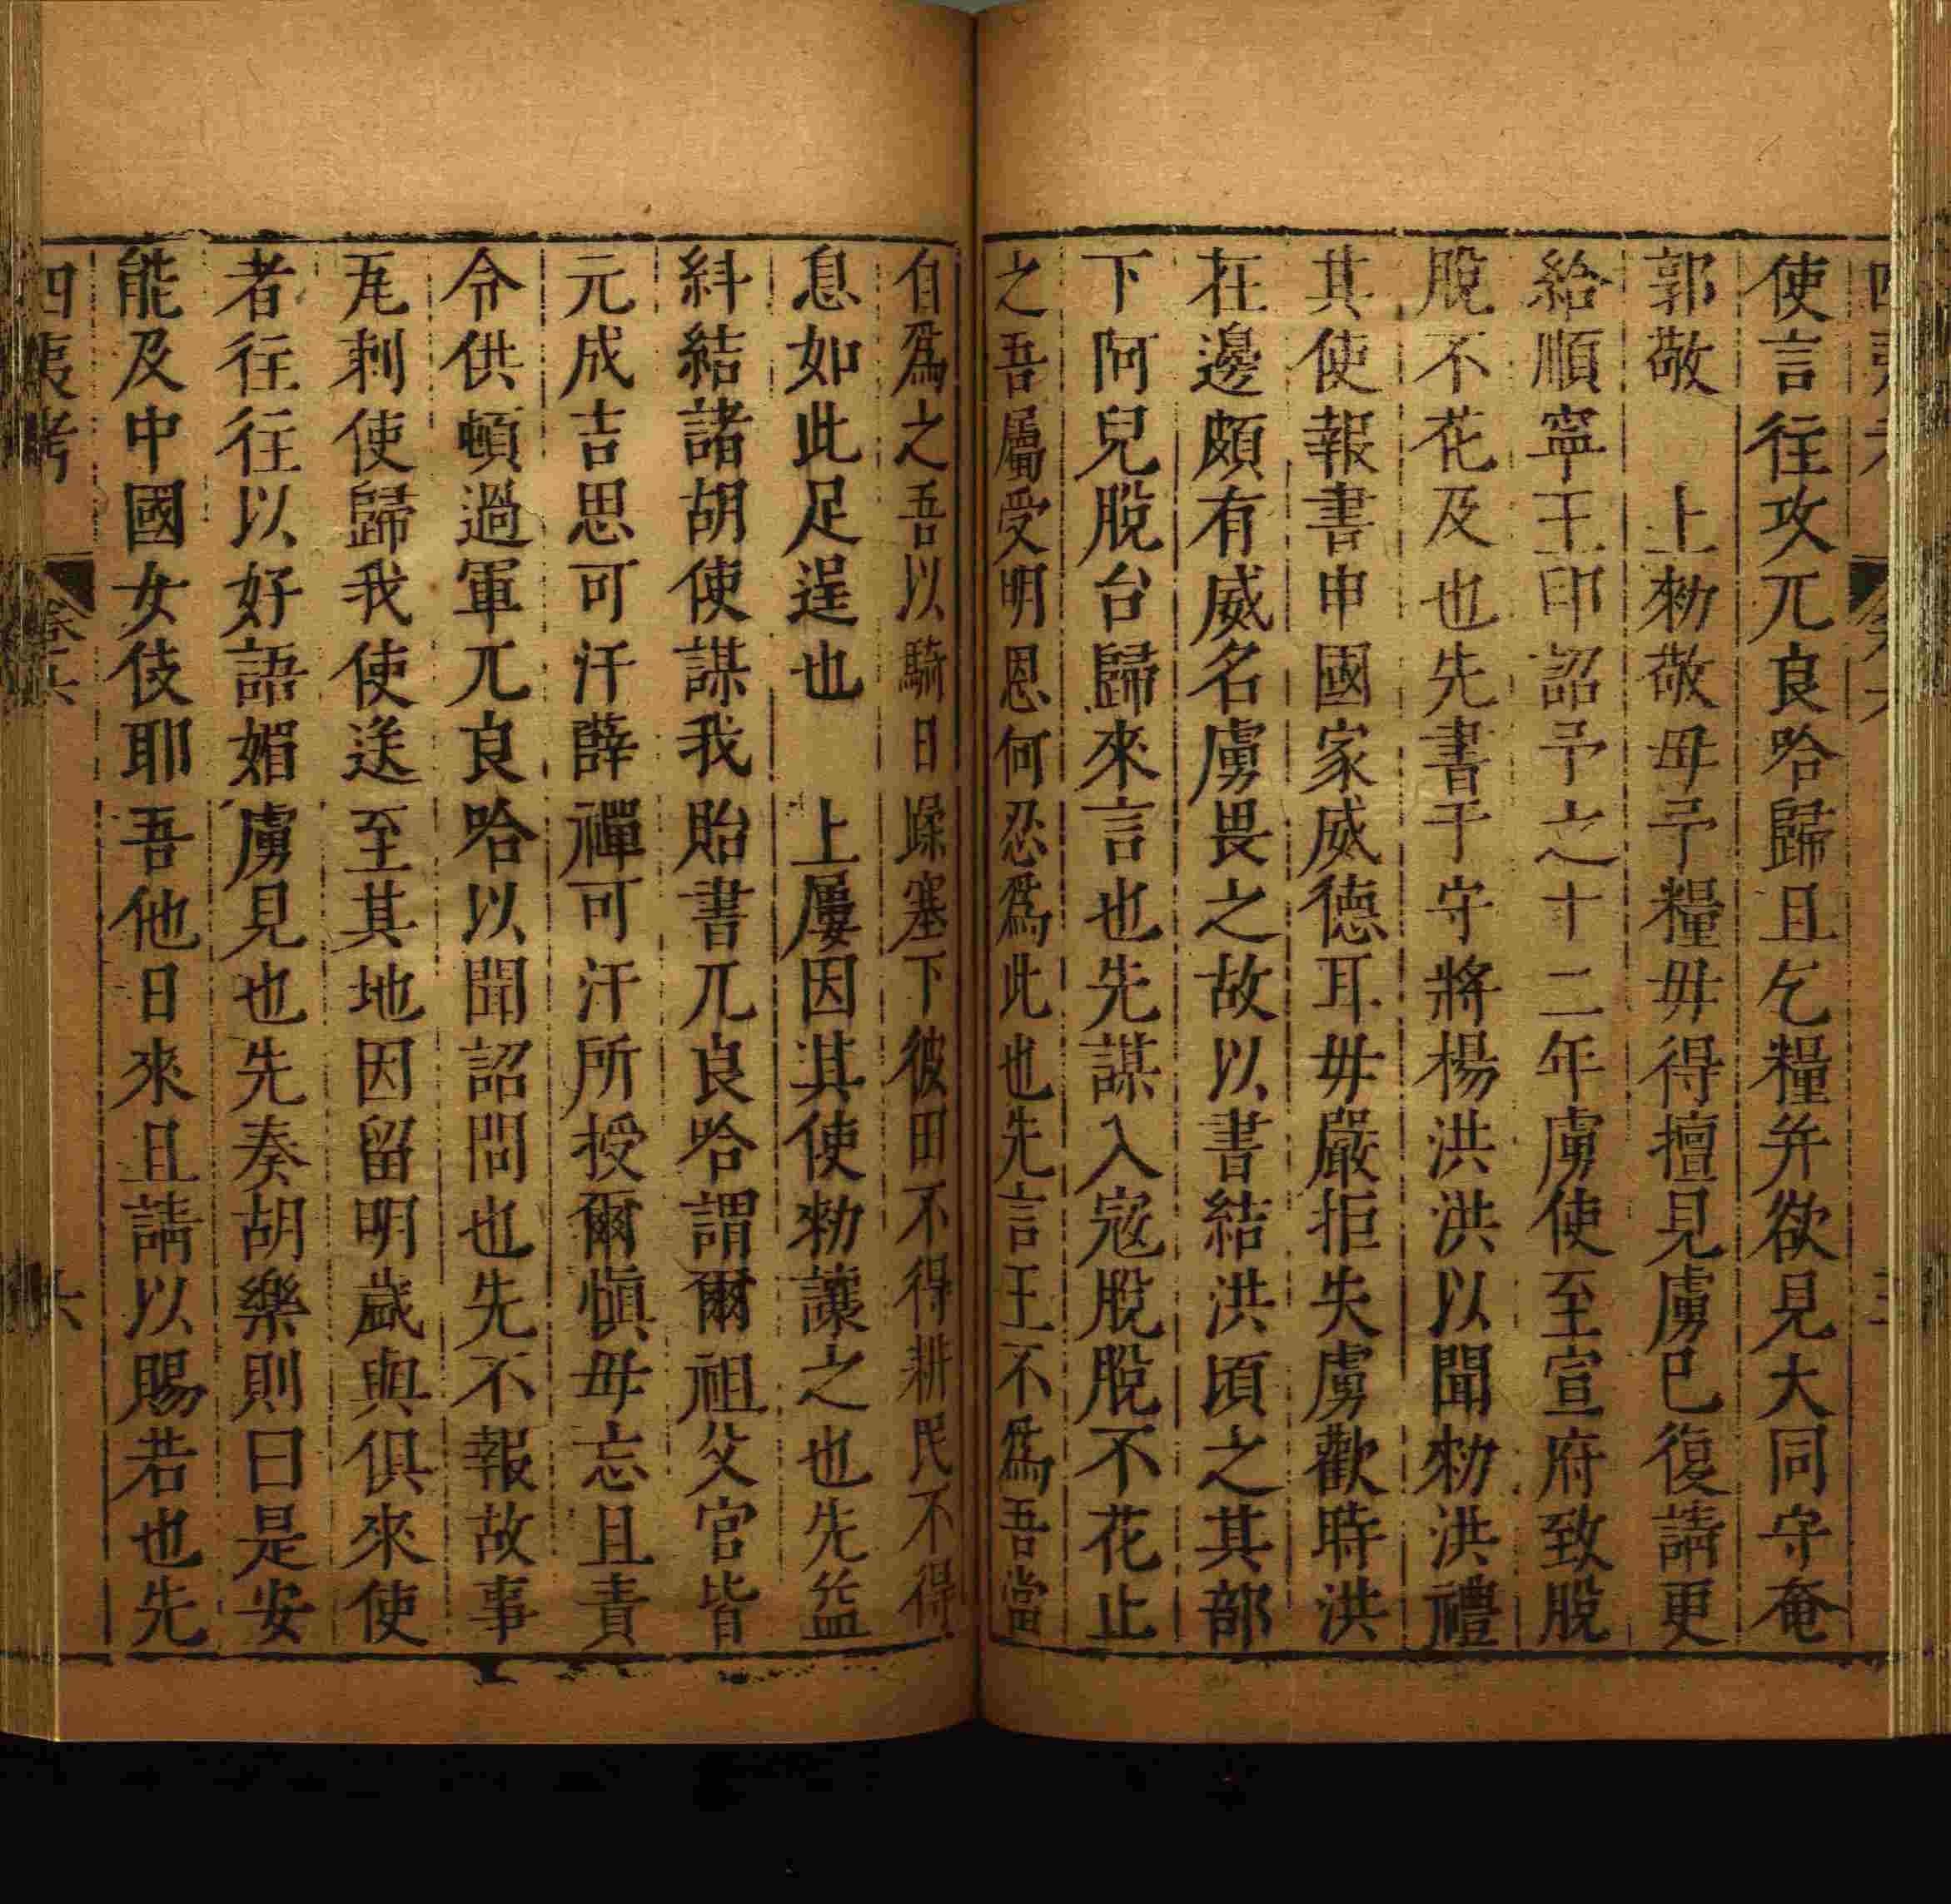 使言往攻兀良哈歸且乞糧弁欲見大同守奄
郭敬 上勑敬毋予糧毋得擅見虜巳復請更
給順寧王印詔予之十二年虜使至宣府致脫
脫不花及也先書于守將楊洪洪以聞勑洪禮
其使報書申國家威德耳毋嚴拒失虜歡時洪
在邊頗有威名虜畏之故以書結洪頃之其部
下阿兒脫台歸來言也先謀入寇脫脫不花止
之吾屬受明恩何忍爲此也先言王不爲吾當
自爲之吾以騎日躁塞下彼田不得耕民不得
息如此足逞也 上屢因其使勑讓之也先益
糾結諸胡使謀我貽書兀良哈謂爾祖父官皆
元成吉思可汗薛禪可汗所授爾慎毋忘且責
令供頓過軍兀良哈以聞詔問也先不報故事
瓦剌使歸我使送至其地因留明歲與俱來使
者往往以好語媚虜見也先奏胡樂則曰是安
能及中國女伎耶吾他日來且請以賜若也先
四夷考 卷六 六